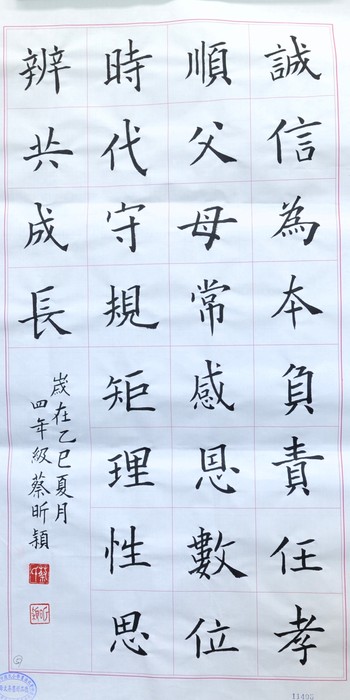 誠信為本負責任孝
順父母常感恩數位
時代守規矩理性思
辨共成長
歲在乙巳夏月
四年級蔡昕穎
11405